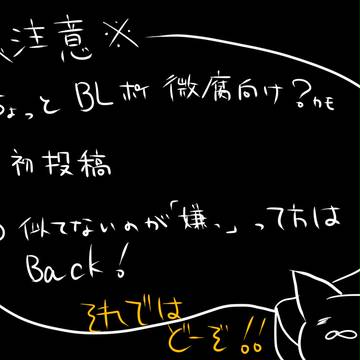 注意※
ょっと BLポイ 微腐向け?カモ
初投稿
似てないのが「嫌っ」って方は
Back!
それでは
どーぞ!!